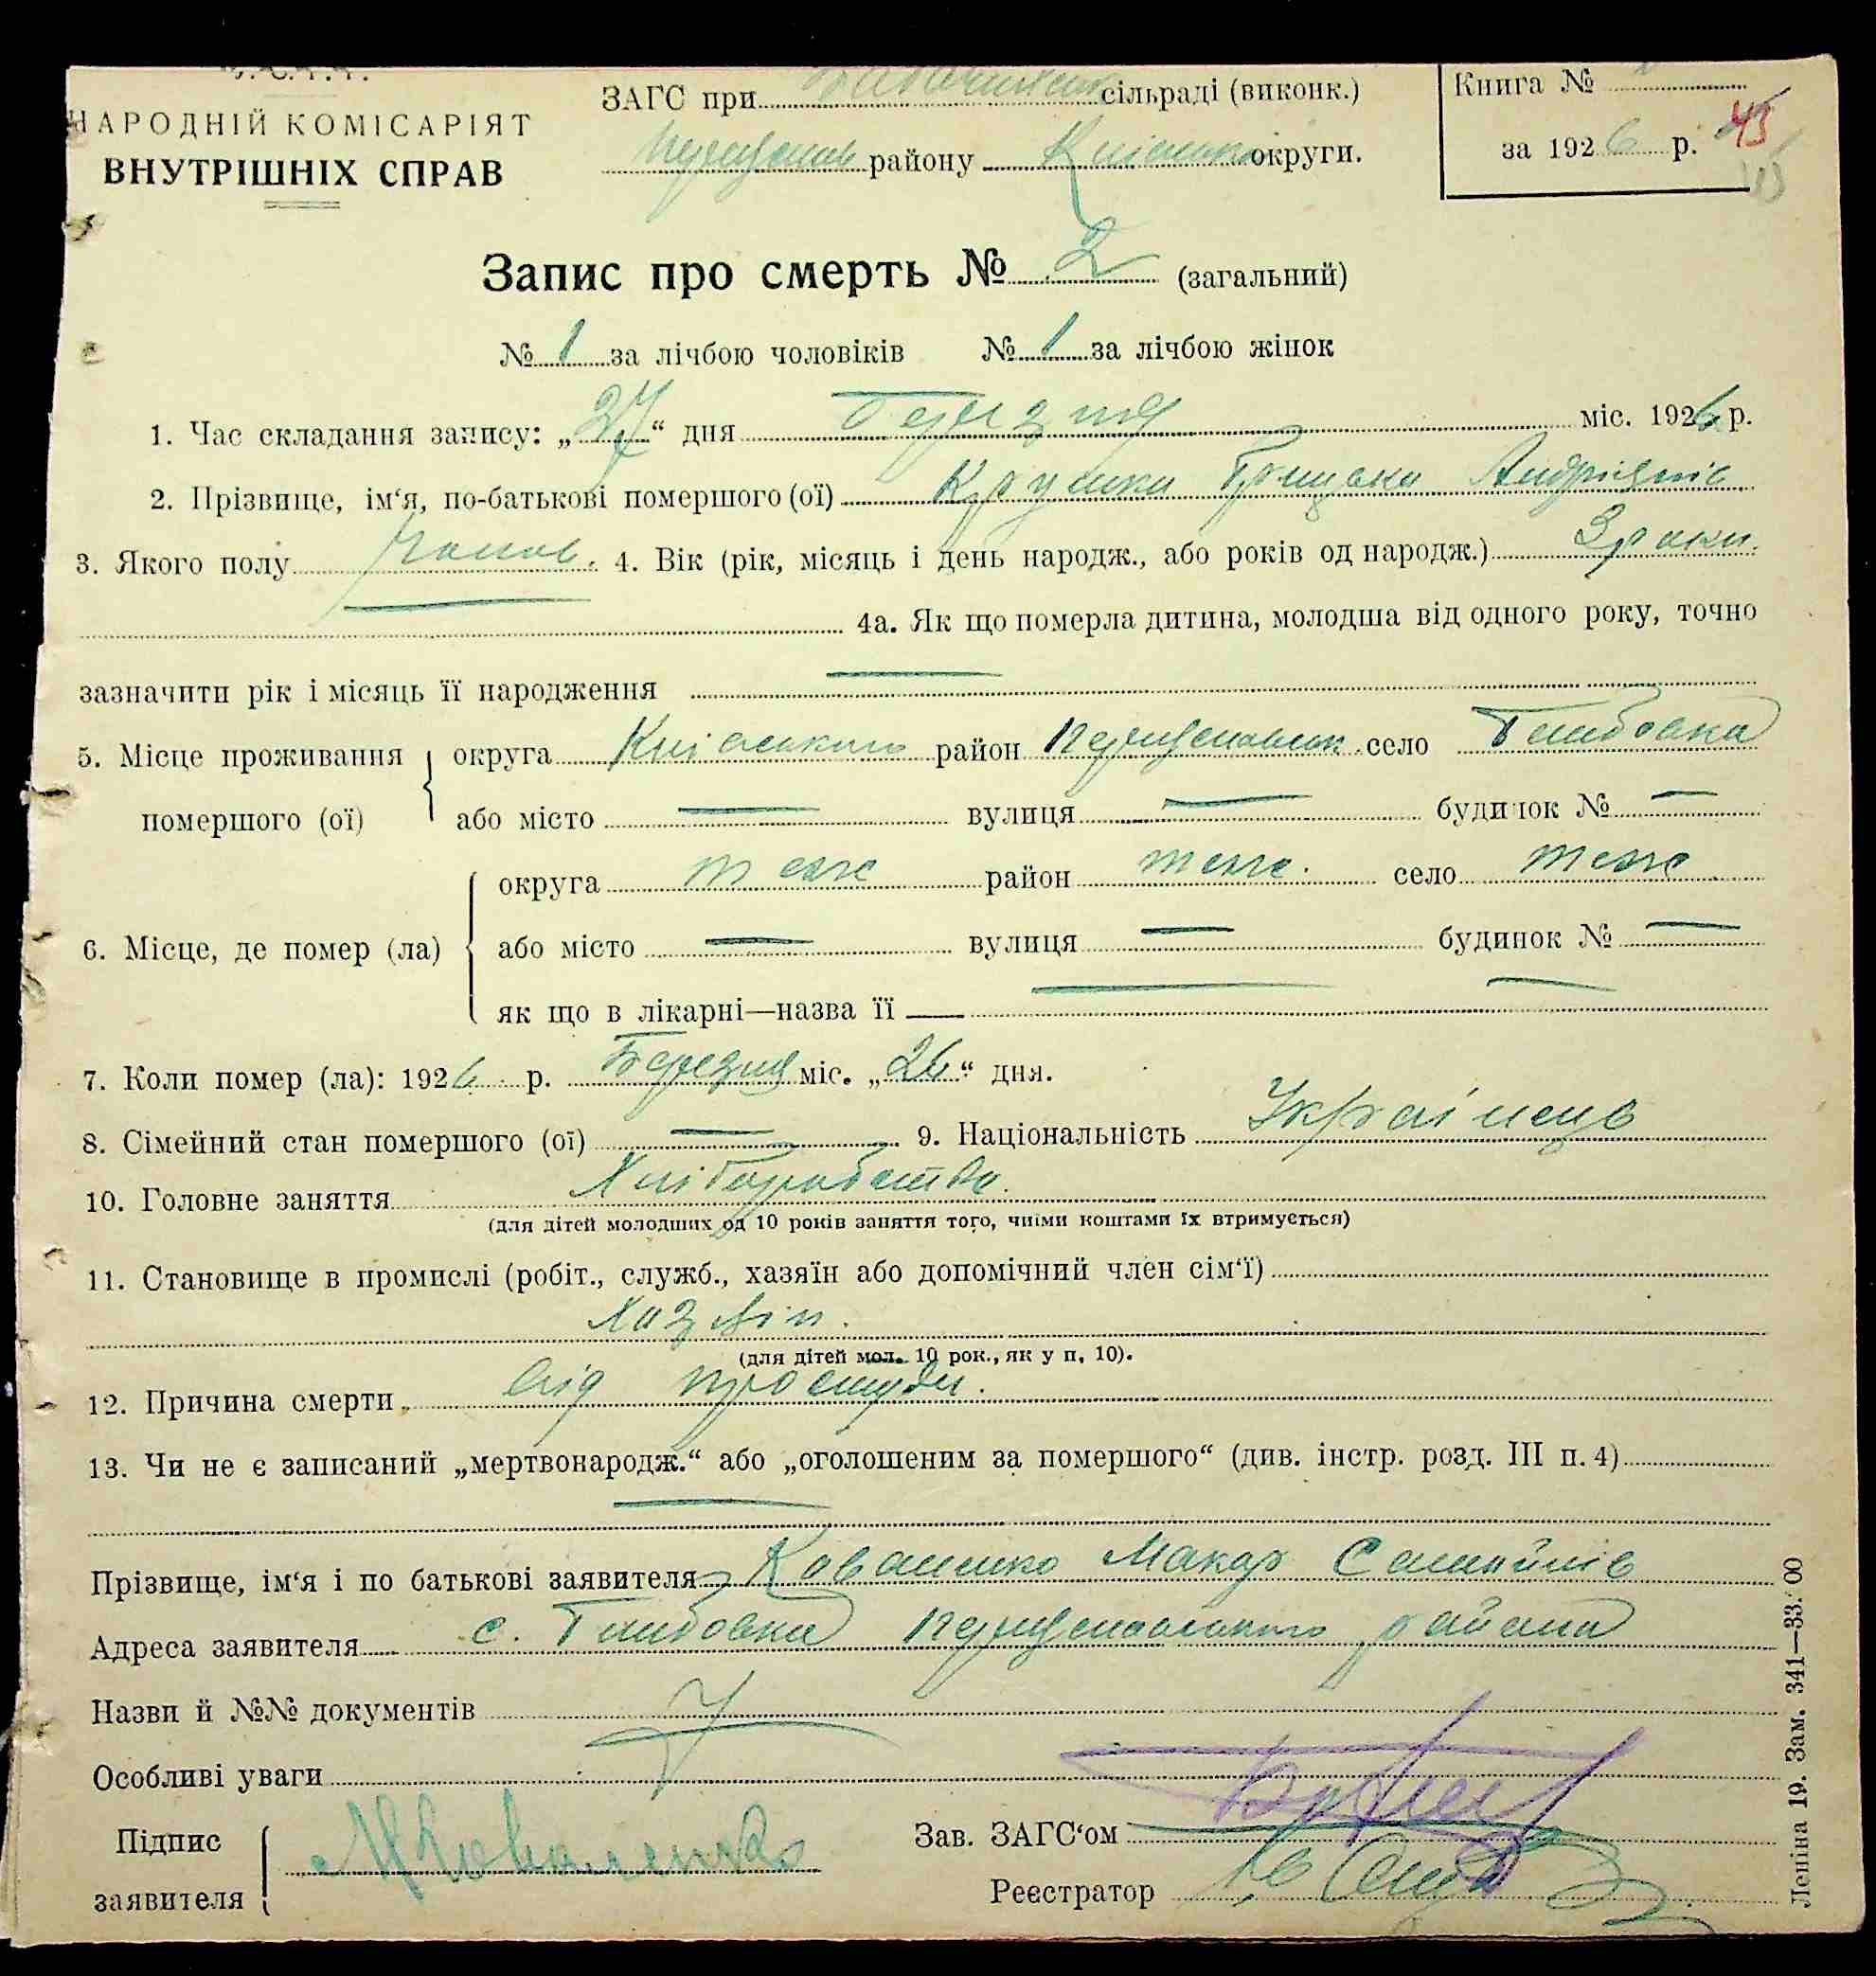 У.С.Р.Р.
НАРОДНІЙ КОМІСАРІЯТ
ВНУТРІШНІХ СПРАВ
ЗАГС при сільраді (виконк.)
району округи.
Книга №
за 1926 р. 45
Запис про смерть № 2 (загальний)
№ 1 за лічбою чоловіків № 1 за лічбою жінок
1. Час складання запису: „27“ дня Березня міс. 1926 р.
2. Прізвище, ім‘я, по-батькові помершого (ої) Андріянів
3. Якого полу чолов. 4. Вік (рік, місяць і день народж., або років од народж.) 3 роки.
4а. Як що померла дитина, молодша від одного року, точно
зазначити рік і місяць її народження —
5. Місце проживання помершого (ої) округа Київського район село
або місто — вулиця — будинок № —
6. Місце, де помер (ла) округа теж район теж. село теж
або місто — вулиця — будинок № —
як що в лікарні—назва її —
7. Коли помер (ла): 1926 р. Березня міс. „26“ дня.
8. Сімейний стан помершого (ої) — 9. Національність Українець
10. Головне заняття Хліборобство.
(для дітей молодших од 10 років заняття того, чиїми коштами їх втримується)
11. Становище в промислі (робіт., служб., хазяїн або допомічний член сім‘ї)
Хазяін.
(для дітей мол. 10 рок., як у п. 10).
12. Причина смерти від простуди.
13. Чи не є записаний „мертвонародж.“ або „оголошеним за помершого“ (див. інстр. розд. III п. 4)
—
Прізвище, ім‘я і по батькові заявителя Коваленко Макар Самійлів
Адреса заявителя с. района
Назви й №№ документів
Особливі уваги
Підпис заявителя М Коваленко
Зав. ЗАГС‘ом
Реєстратор
Леніна 19. Зам. 341—33.000